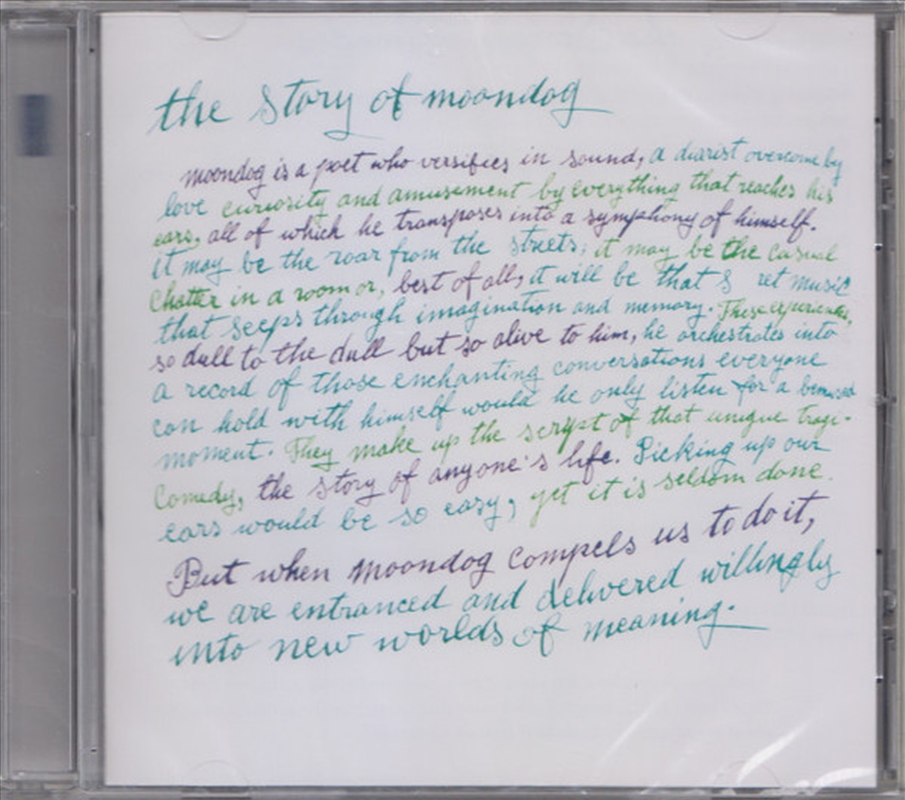 the story of moondog
moondog is a poet who versifies in sound, a diarist overcome by
love curiosity and amusement by everything that reaches his
ears, all of which he transposes into a symphony of himself.
it may be the roar from the streets; it may be the casual
chatter in a room or, best of all, it will be that S ret music
that seeps through imagination and memory. These experiences,
so dull to the dull but so alive to him, he orchestrates into
a record of those enchanting conversations everyone
can hold with himself would he only listen for a bemused
moment. They make up the script of that unique tragi-
comedy, the story of anyone's life. Picking up our
ears would be so easy, yet it is seldom done.
But when moondog compels us to do it,
we are entranced and delivered willingly
into new worlds of meaning.